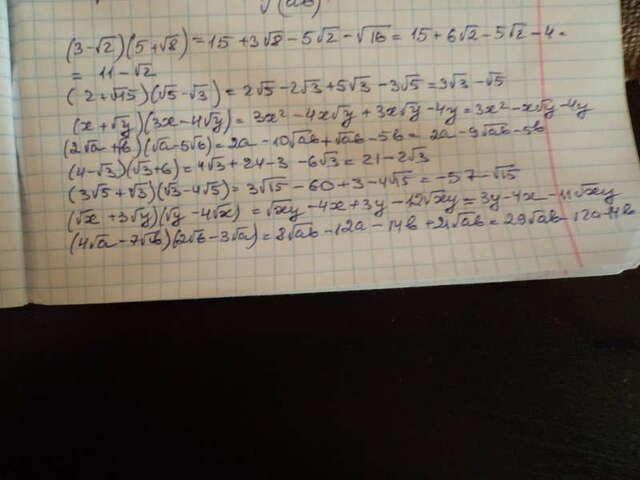 √(ab)
(3-√2)(5+√8) = 15 + 3√8 - 5√2 - √16 = 15 + 6√2 - 5√2 - 4 =
= 11 - √2
(2+√15)(√5-√3) = 2√5 - 2√3 + 5√3 - 3√5 = 3√3 - √5
(x+√y)(3x-4√y) = 3x² - 4x√y + 3x√y - 4y = 3x² - x√y - 4y
(2√a+√b)(√a-5√b) = 2a - 10√ab + √ab - 5b = 2a - 9√ab - 5b
(4-√3)(√3+6) = 4√3 + 24 - 3 - 6√3 = 21 - 2√3
(3√5+√3)(√3-4√5) = 3√15 - 60 + 3 - 4√15 = -57 - √15
(√x+3√y)(√y-4√x) = √xy - 4x + 3y - 12√xy = 3y - 4x - 11√xy
(4√a-7√b)(2√b-3√a) = 8√ab - 12a - 14b + 21√ab = 29√ab - 12a - 14b